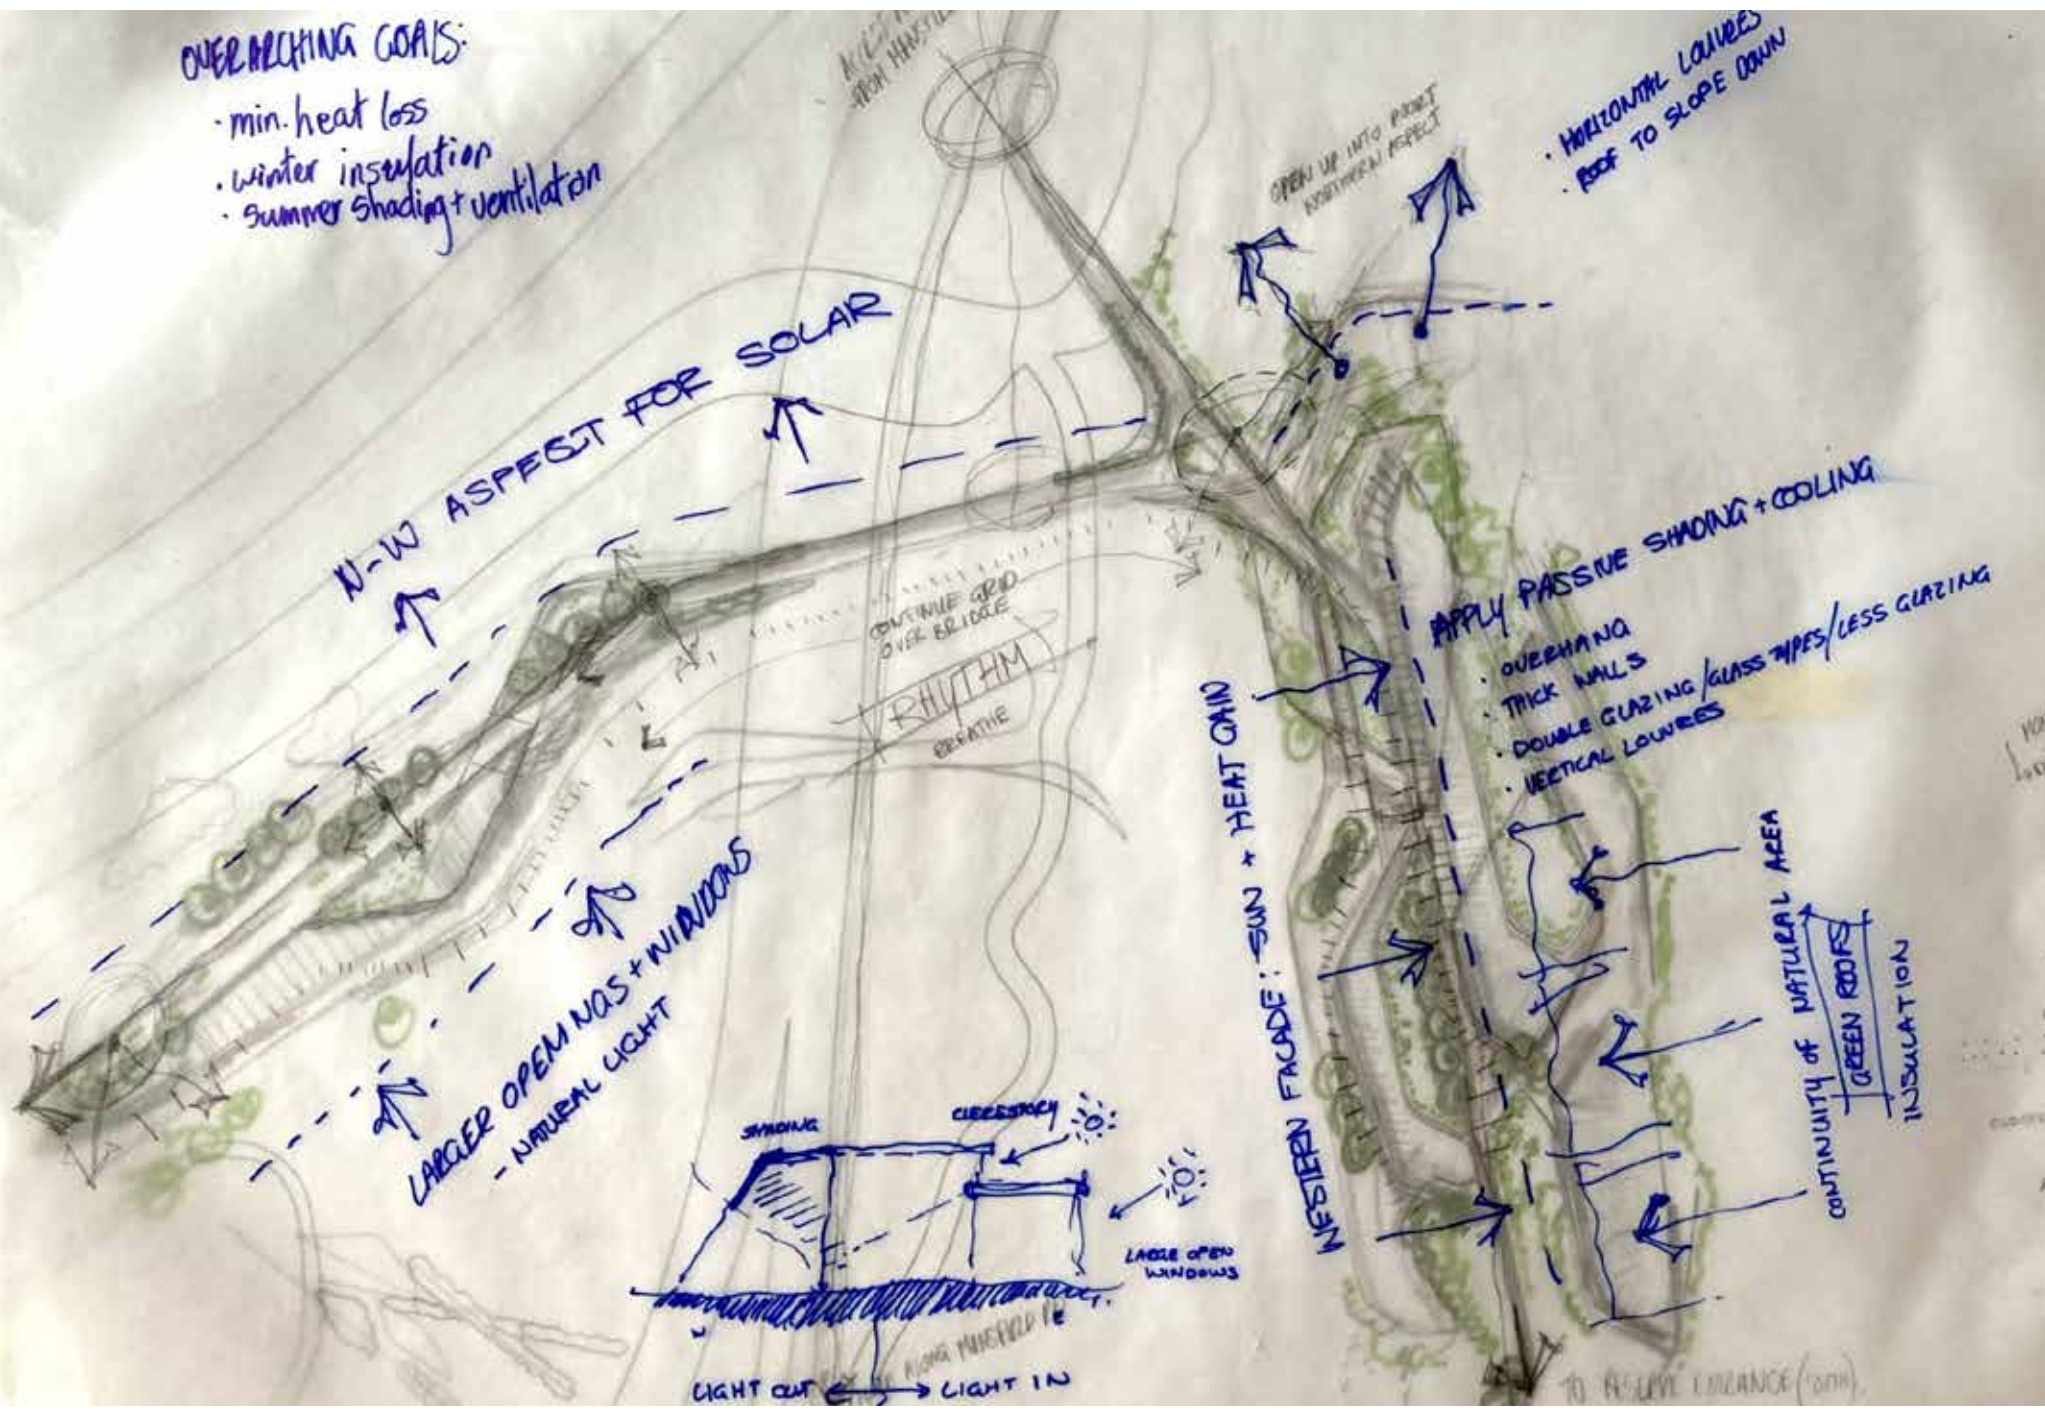 OVERARCHING GOALS:
· min. heat loss
· winter insulation
· summer shading + ventilation
FROM
OPEN UP INTO
NORTHERN ASPECT
· HORIZONTAL LOUVRES
· ROOF TO SLOPE DOWN
N-W ASPECT FOR SOLAR
CONTINUE GRID
OVER BRIDGE
RHYTHM
BREATHE
APPLY PASSIVE SHADING + COOLING
· OVERHANG
· THICK WALLS
· DOUBLE GLAZING/GLASS TYPES/LESS GLAZING
· VERTICAL LOUVRES
WESTERN FACADE: SUN + HEAT GAIN
LARGER OPENINGS + WINDOWS
- NATURAL LIGHT
CONTINUITY OF NATURAL AREA
GREEN ROOFS
INSULATION
SHADING
CLERESTORY
LARGE OPEN
WINDOWS
W
E
ALONG MANSFIELD
LIGHT OUT
LIGHT IN
TO RESERVE ENTRANCE